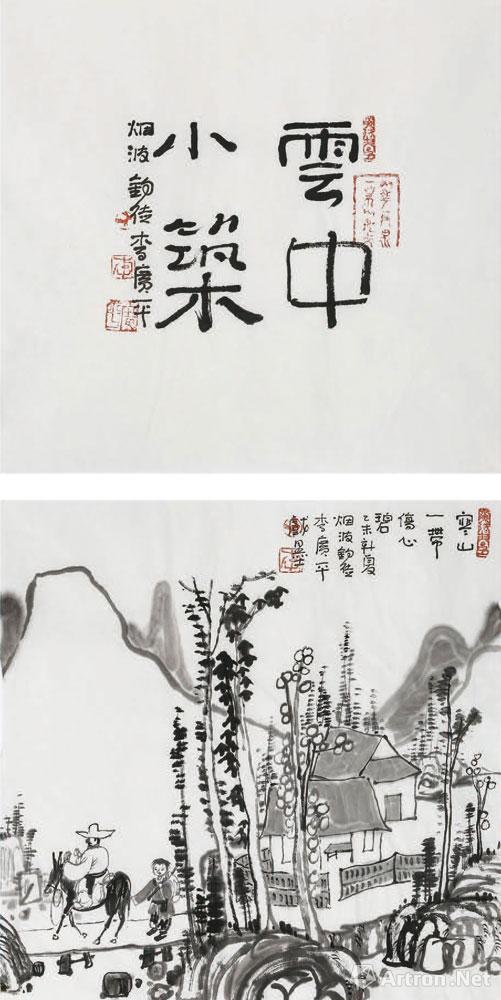 雲中
小築
烟波釣徒李廣平
寒山
一帶
傷心
碧
乙未初夏
烟波釣徒
李廣平
戲墨
Artron.Net